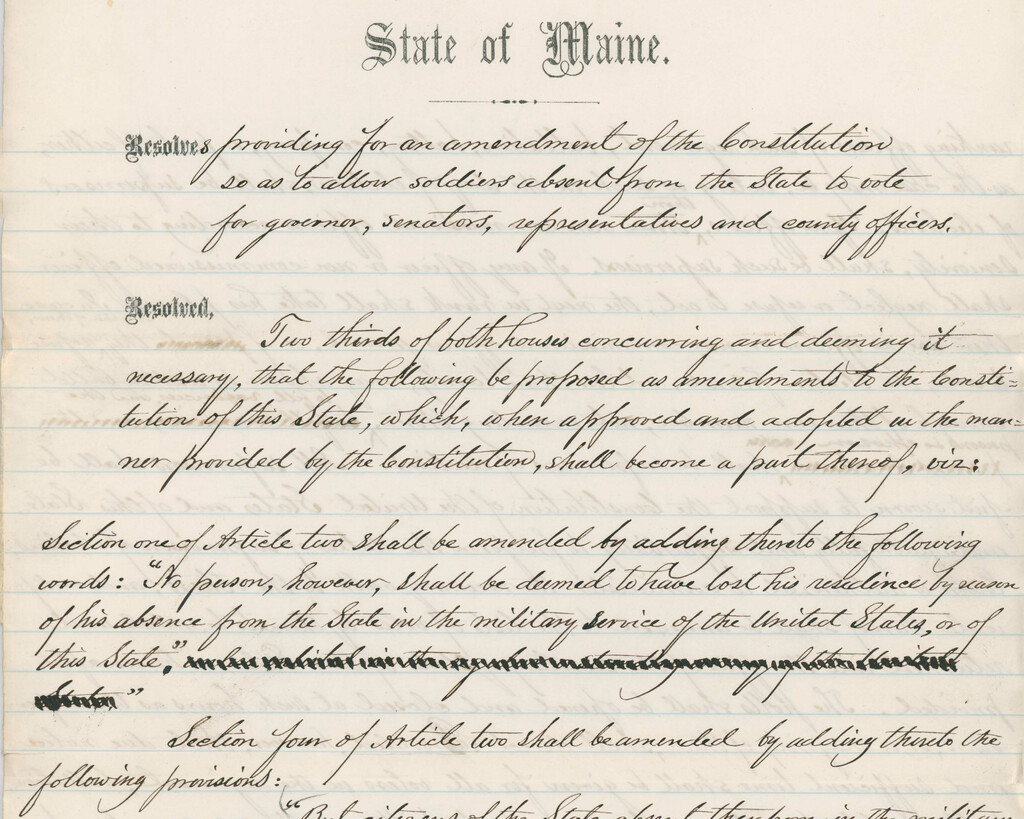 State of Maine.
Resolves providing for an amendment of the Constitution
so as to allow soldiers absent from the State to vote
for governor, senators, representatives and county officers.
Resolved,
Two thirds of both houses concurring and deeming it
necessary, that the following be proposed as amendments to the Consti=
tution of this State, which, when approved and adopted in the man=
ner provided by the Constitution, shall become a part thereof, viz:
Section one of Article two shall be amended by adding thereto the following
words: "No person, however, shall be deemed to have lost his residence by reason
of his absence from the State in the military service of the United States, or of
this State."
"
Section four of Article two shall be amended by adding thereto the
following provisions:
"But citizens of the State absent therefrom in the military